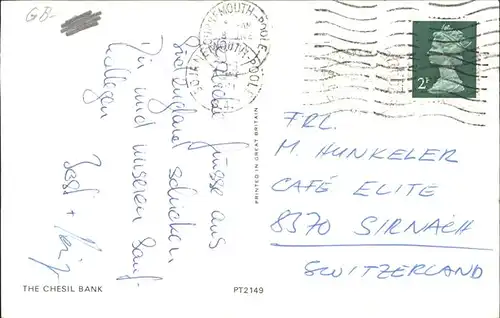 GB-
BOURNEMOUTH-POOLE
2P
Grüsse aus
Südengland schicken
Dir und unseren
Kollegen
PRINTED IN GREAT BRITAIN
FRL.
M. HUNKELER
CAFÉ ELITE
8370 SIRNACH
SWITZERLAND
THE CHESIL BANK
PT2149